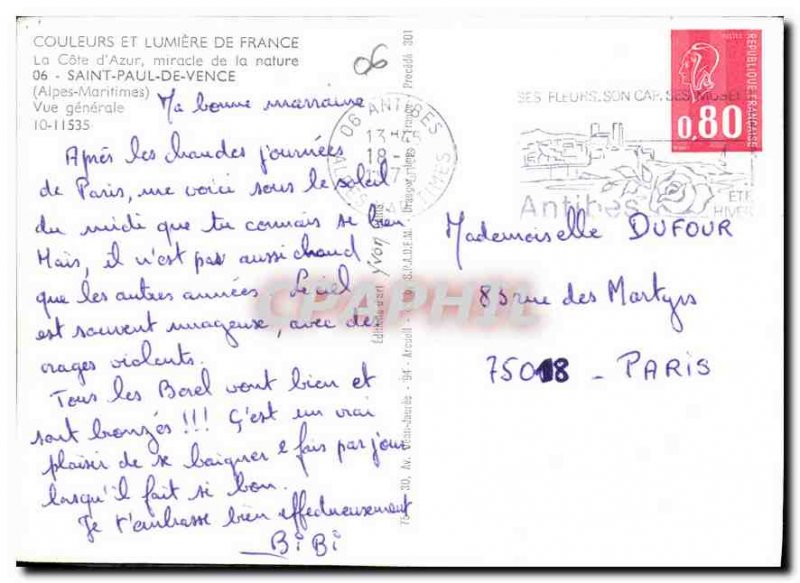 COULEURS ET LUMIÈRE DE FRANCE
La Côte d'Azur, miracle de la nature
06 - SAINT-PAUL-DE-VENCE
(Alpes-Maritimes)
Vue générale
10-11535
06
Ma bonne marraine
Après les chaudes journées
de Paris, me voici sous le soleil
du midi que tu connais si bien.
Mais, il n'est pas aussi chaud
que les autres années. Le ciel
est souvent nuageux, avec des
orages violents.
Tous les Borel vont bien et
sont bronzés !!! C'est un vrai
plaisir de se baigner 2 fois par jour
lorsqu'il fait si bon.
Je t'embrasse bien affectueusement
BiBi
Editions d'art Yvon
30, Av. Jean-Jaurès - 94 - Arcueil
S.P.A.D.E.M.
Procédé 301
06 ANTIBES
13H
18 -
ALPES MARITIMES
SES FLEURS. SON CAP. SES MUSEES
Antibes
ÉTÉ
HIVER
POSTES
REPUBLIQUE FRANÇAISE
0,80
Mademoiselle DUFOUR
83 rue des Martyrs
75018 - PARIS
CPAPHIL